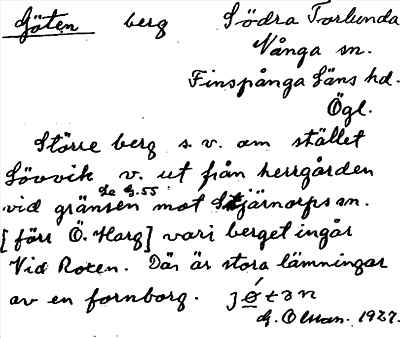 Göten berg Södra Torlunda
Vånga sn.
Finspånga läns hd.
Ögl.
Större berg s. v. om stället
Lövvik v. ut från herrgården
Se G. 55
vid gränsen mot Stjärnorps sn.
[förr Ö. Harg] vari berget ingår
Vid Roxen. Där är stora lämningar
av en fornborg.
G. Olsson. 1927.